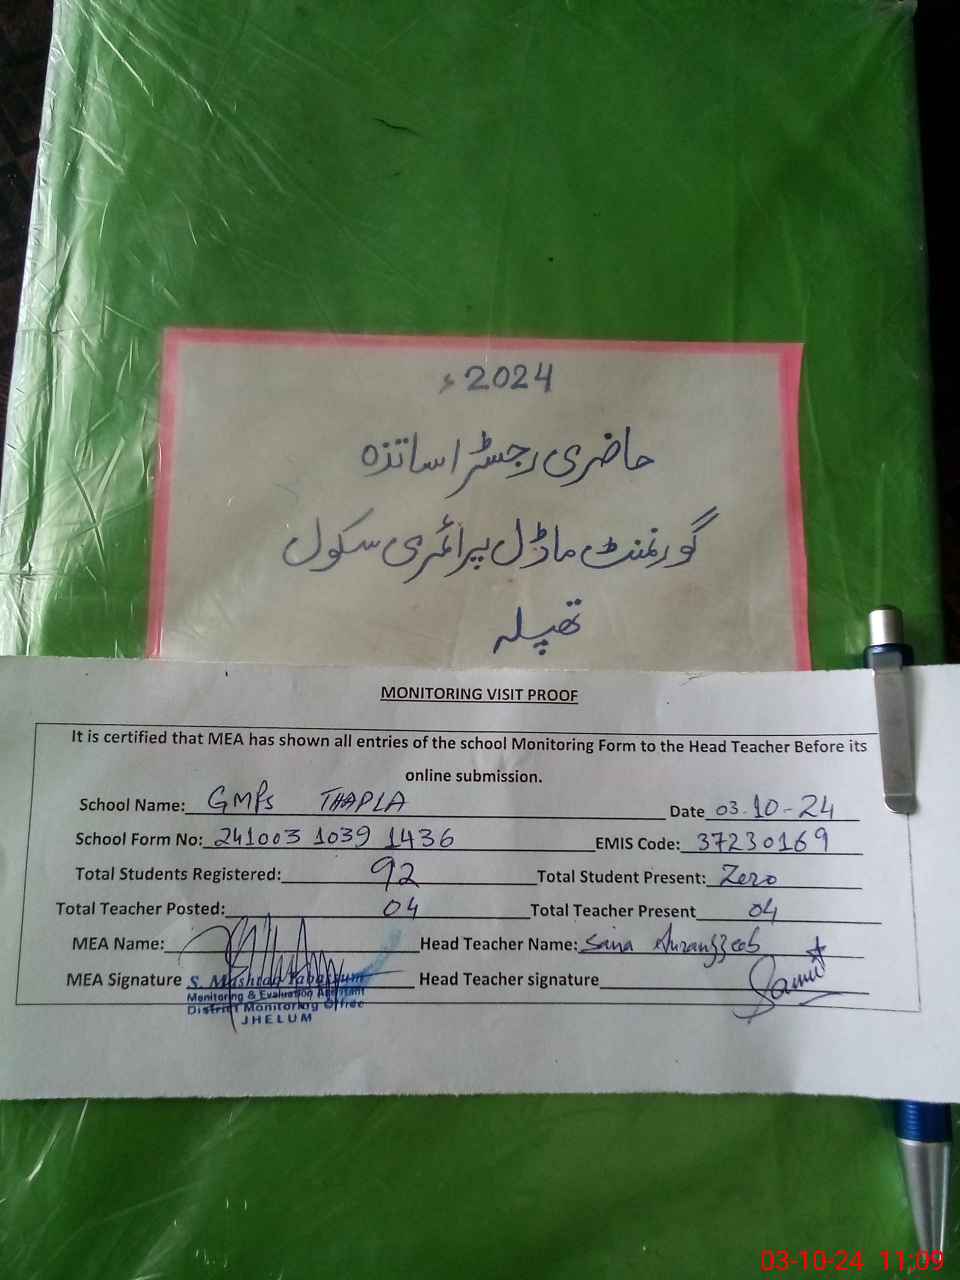 2024ء
حاضری رجسٹر اساتذہ
گورنمنٹ ماڈل پرائمری سکول
تھپلہ
MONITORING VISIT PROOF
It is certified that MEA has shown all entries of the school Monitoring Form to the Head Teacher Before its
online submission.
School Name: GMPs THAPLA Date 03.10-24
School Form No: 241003 1039 1436 EMIS Code: 37230169
Total Students Registered: 92 Total Student Present: Zero
Total Teacher Posted: 04 Total Teacher Present 04
MEA Name: Head Teacher Name: Saira Aurangzeb
MEA Signature S. Mashtaq Tabassum Head Teacher signature
Monitoring & Evaluation Assistant
District Monitoring Office
JHELUM
03-10-24 11:09